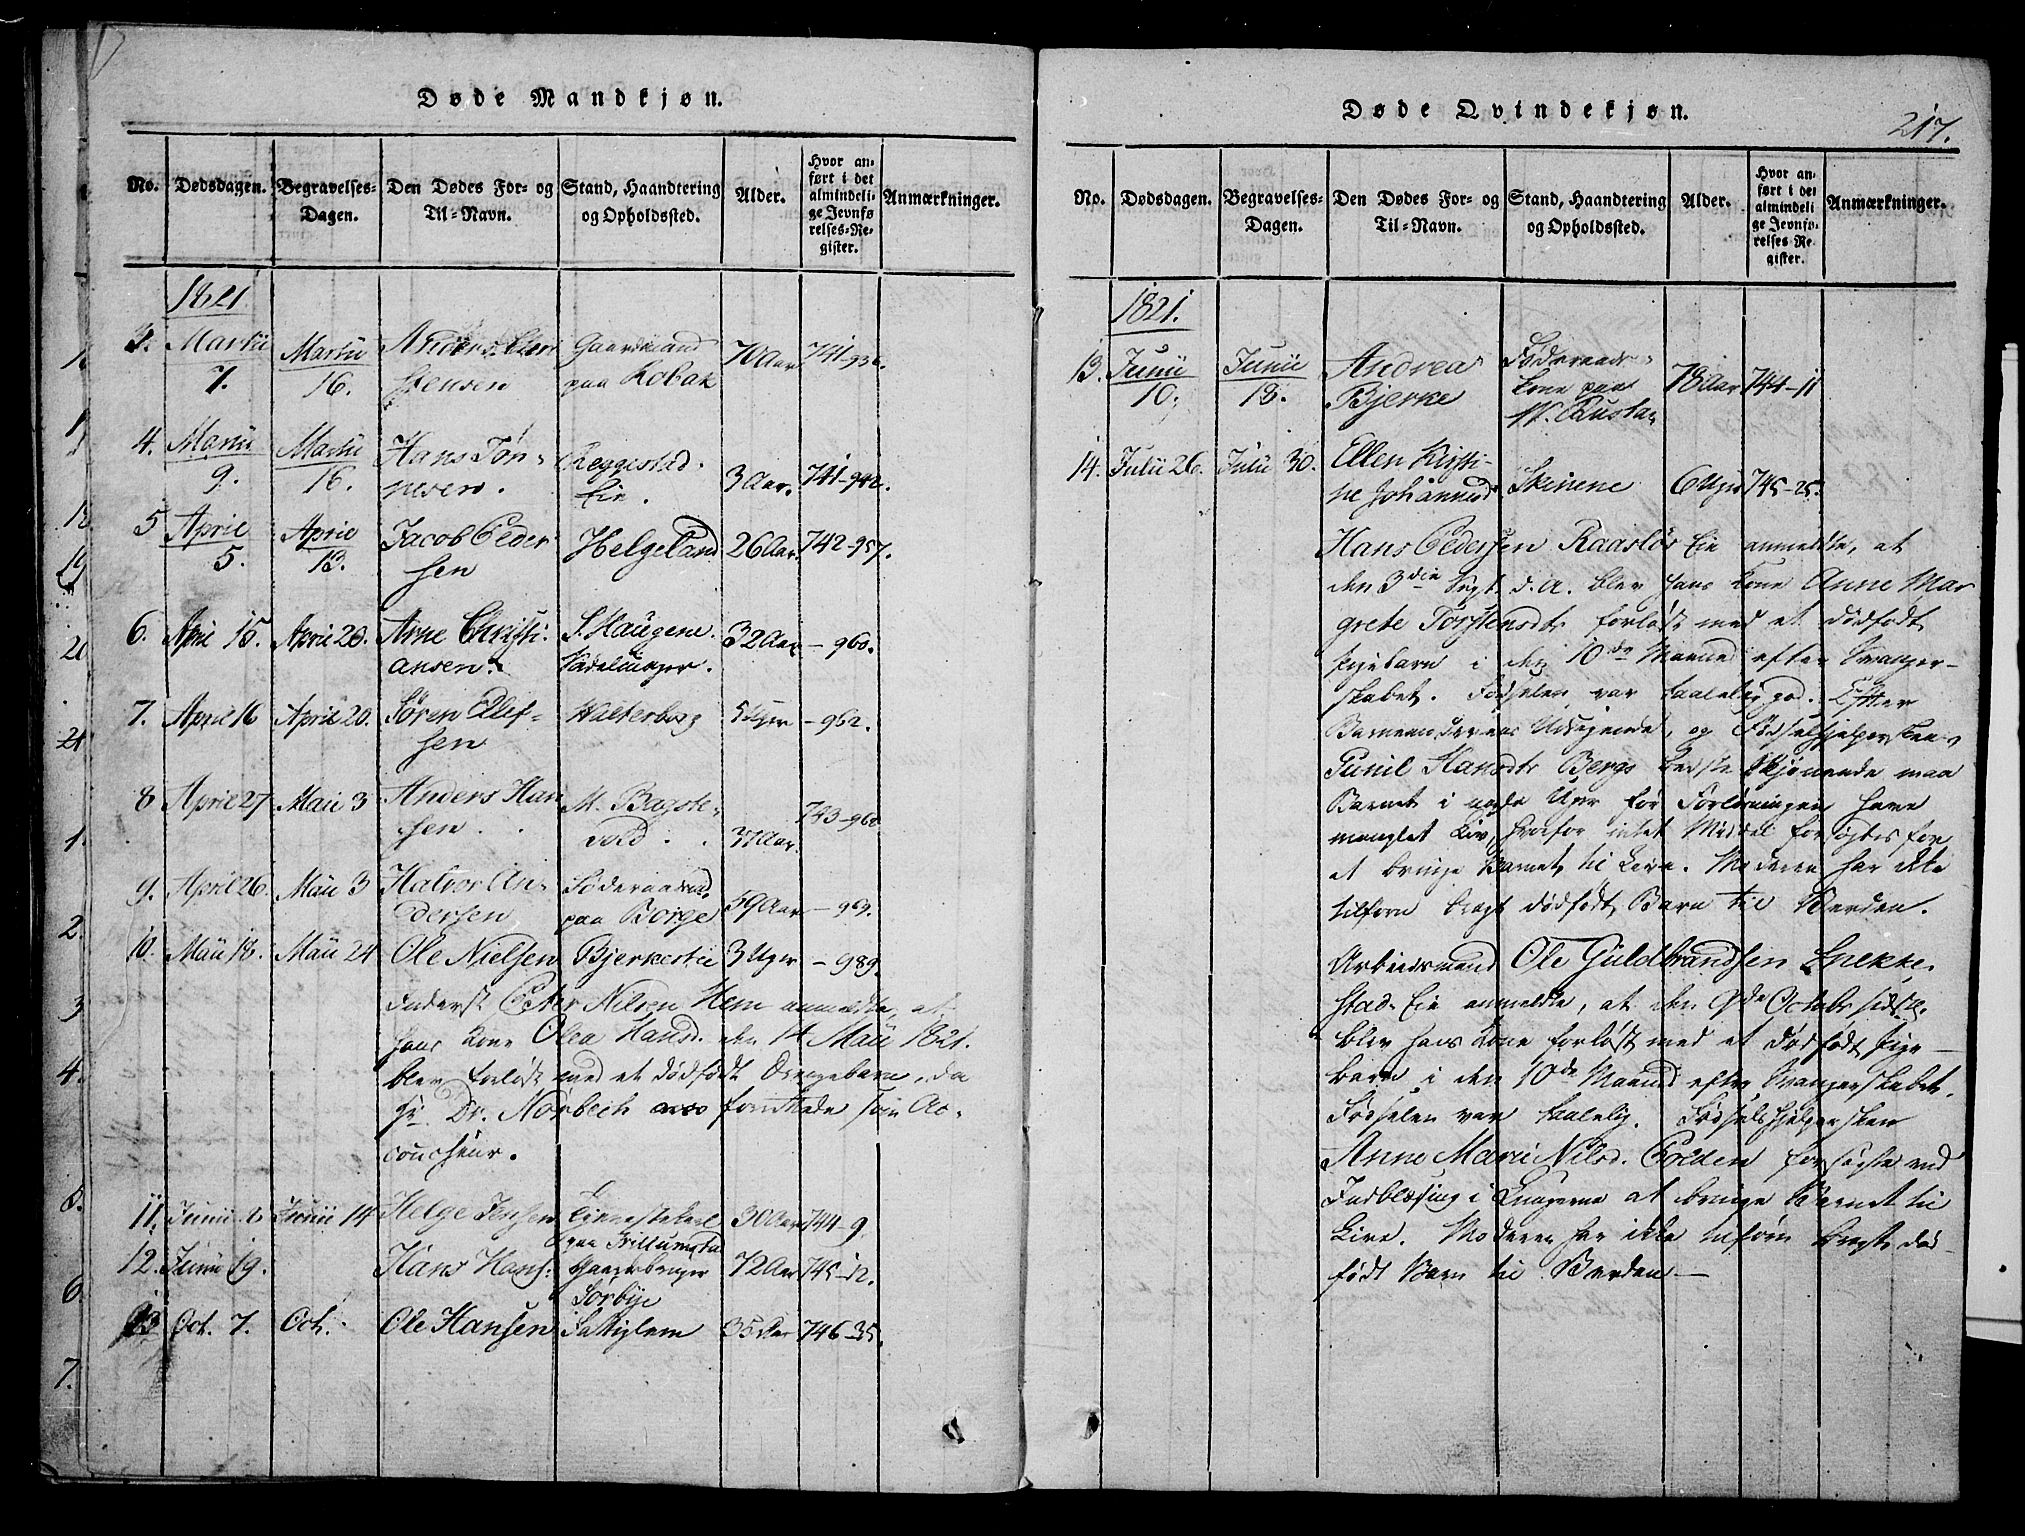 Døde Mandkjøn.
No. Dødsdagen. Begravelses-Dagen. Den Dødes For- og Til-Navn. Stand, Haandtering og Opholdssted. Alder. Hvor anført i det almindelige Jevnførelses-Register. Anmærkninger.
1821
3. Martii 7. Martii 16. Anders Christensen Gaardmand paa Kobak 70 Aar 741-936.
4. Martii 9. Martii 16. Hans Tønnesen. Reggestad Eie. 3 Aar. 741-942.
5 April 5. April 13. Jacob Pedersen Helgeland 26 Aar. 742-957.
6. April 15. April 20. Arne Christiansen. S. Haugene. 32 Aar - 960.
7. April 16 April 20. Søren Ellefsen Walterborg 5 Uger - 962.
8 April 27 Maii 3 Anders Hansen. M. Bagstevold. 37 Aar. 743-968
9. April 26. Maii 3 Halvor Andersen Føderaadsmd. paa Borge 59 Aar - 969.
10. Maii 18. Maii 24 Ole Nielsen Bjerkestii 3 Uger - 989.
Inderst Peter Nilsen Hem anmeldte, at
hans Kone Olea Hansd. den 14 Maii 1821.
blev forløst med et dødfødt Drengebarn, da
Hr. Dr. Nørbech forrettede som Ac-
coucheur.
11. Junii Junii 14 Helge Jensen Tjenestekarl paa 30 Aar 744-9
12. Junii 19. Hans Hans: Gaardbruger Sørbye 72 Aar 745-12.
13 Oct. 7. Oct. Ole Hansen Fattiglem 35 Aar 746-35.
Døde Qvindekjøn.
217.
No. Dødsdagen. Begravelses-Dagen. Den Dødes For- og Til-Navn. Stand, Haandtering og Opholdssted. Alder. Hvor anført i det almindelige Jevnførelses Register. Anmærkninger.
1821.
13. Junii 10. Junii 18. Andrea Bjerke Føderaads-Kone paa 78 Aar 744-11
14. Julii 26. Julii 30. Ellen Kirstine Johannesd Skinene 6 Uger 745-25.
Hans Pedersen Raasløs Eie anmeldte, at
den 3die Sept. d. A. blev hans Kone Anne Mar
grete Torstensdtr forløst med et dødfødt
Pigebarn i den 10de Maaned efter Svanger-
skabet. Fødselen var taalelig god. Efter
Barnemoderens Udsigende, og Fødselshjelperskens
Gunil Hansdtr Bergs bedste Skjønnende maa
Barnet i nogle Uger før Forløsningen have
manglet Liv, hvorfor intet Middel forsøgtes for
at bringe Barnet til Live. Moderen har ikke
tilforn bragt dødfødt Barn til Verden.
Arbeidsmand Ole Guldbrandsen Snekke-
stad Eie anmeldte, at den 9de Octobr sidstl.
blev hans Kone forløst med et dødfødt Pige-
barn i den 10de Maaned efter Svangerskabet.
Fødselen var taalelig. Fødselshjelpersken
Anne Marie Nilsd. Holden forsøgte ved
Indblæsing i Lungerne at bringe Barnet til
Live. Moderen har ikke tilforn bragt død-
født Barn til Verden-